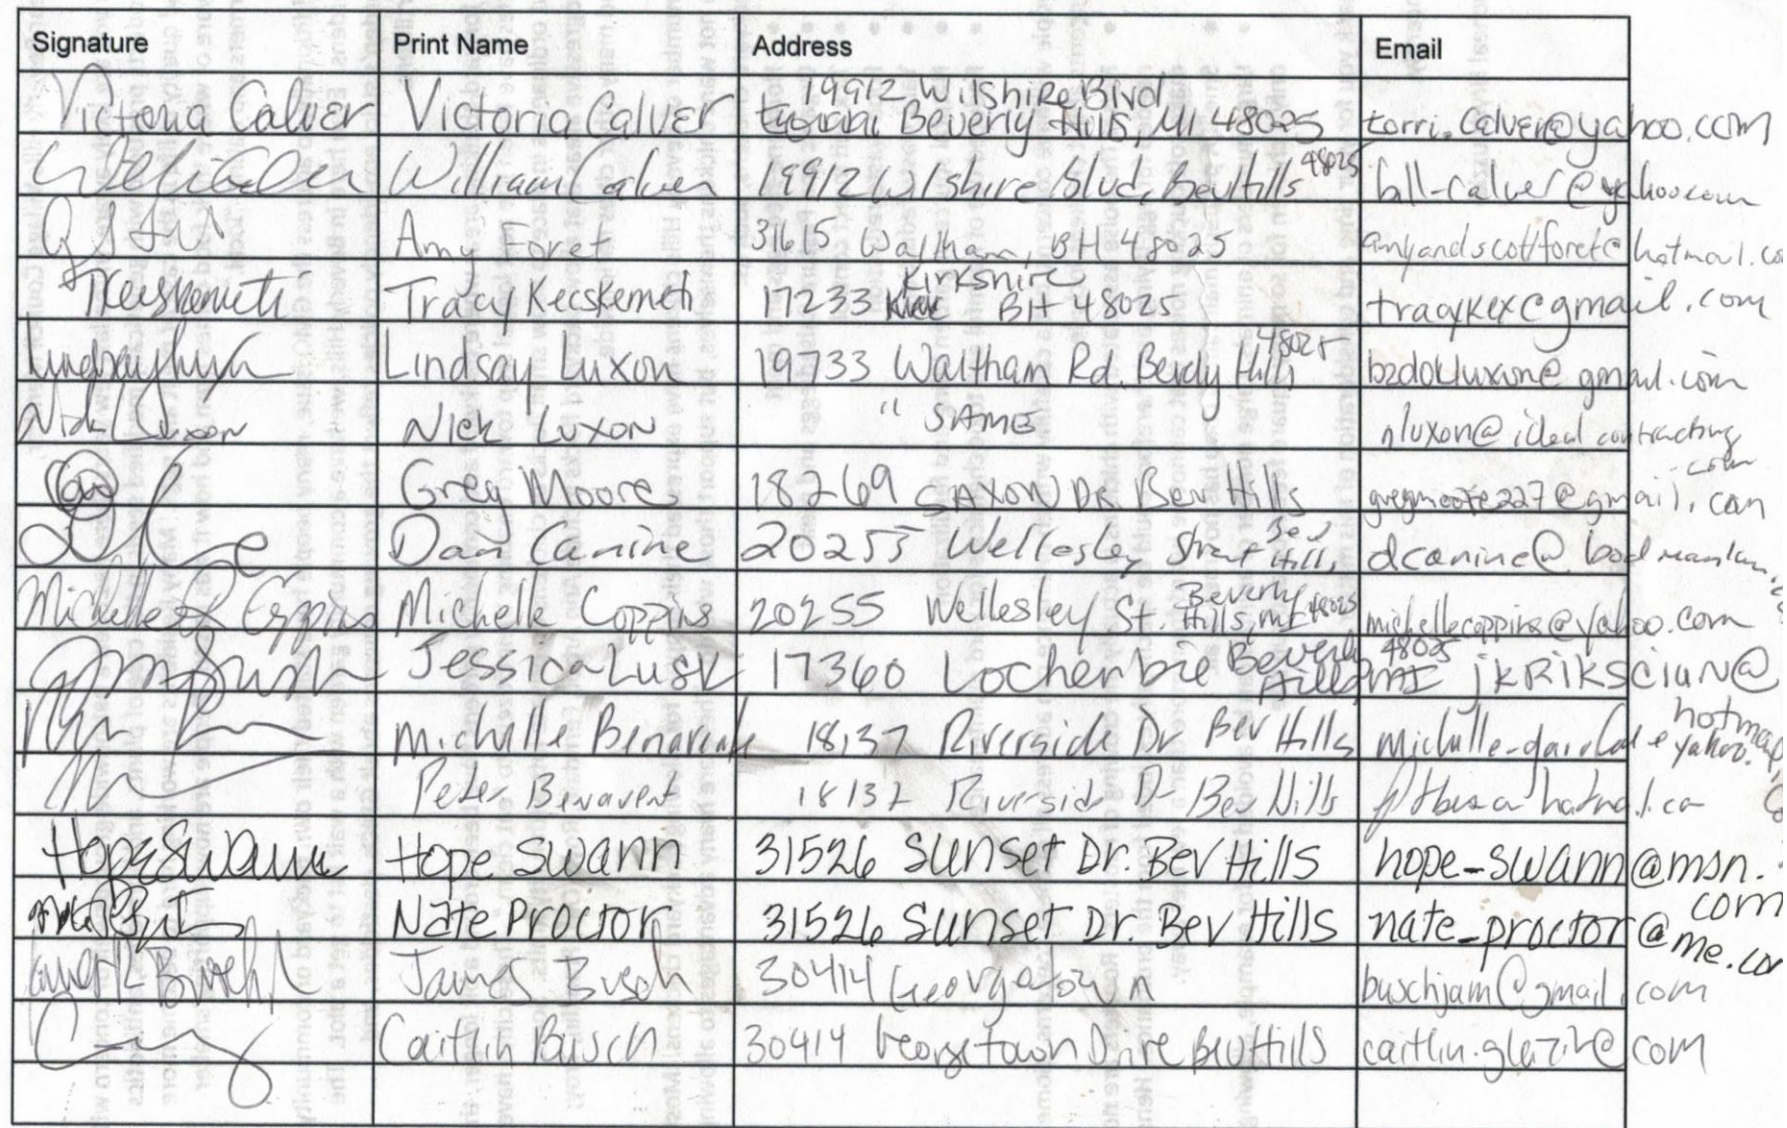 Signature Print Name Address Email
Victoria Calver Victoria Calver 19912 Wilshire Blvd Beverly Hills, MI 48025 torri.calver@yahoo.com
William Calver 19912 Wilshire Blvd, Bev Hills 48025 bill-calver@yahoo.com
Amy Foret 31615 Waltham, BH 48025 amyandscottforet@hotmail.co
TKecskemeti Tracy Kecskemeti 17233 Kirkshire BH 48025 tracykex@gmail.com
Lindsay Luxon 19733 Waltham Rd. Bevrly Hills 48025 bzdokluxon@gmail.com
Nick Luxon Nick Luxon " SAME nluxon@idealcontracting.com
Greg Moore 18269 SAXON DR. Bev Hills gregmoore227@gmail.com
Dan Canine 20255 Wellesley Street Bev Hills, dcanine@
Michelle Coppins Michelle Coppins 20255 Wellesley St. Beverly Hills, MI 48025 michellecoppins@yahoo.com
Jessica Lusk 17360 Locherbie Beverly Hills MI 48025 jkRiksciun@hotmail
Michelle 18137 Riverside Dr Bev Hills yahoo.
Peter Benavent 18137 Riverside Dr Bev Hills
Hope Swann Hope Swann 31526 Sunset Dr. Bev Hills hope_swann@msn.com
Nate Proctor 31526 Sunset Dr. Bev Hills nate_proctor@me.com
James Busch 30414 Georgetown buschjam@gmail.com
Caitlin Busch 30414 Georgetown Drive Bev Hills com